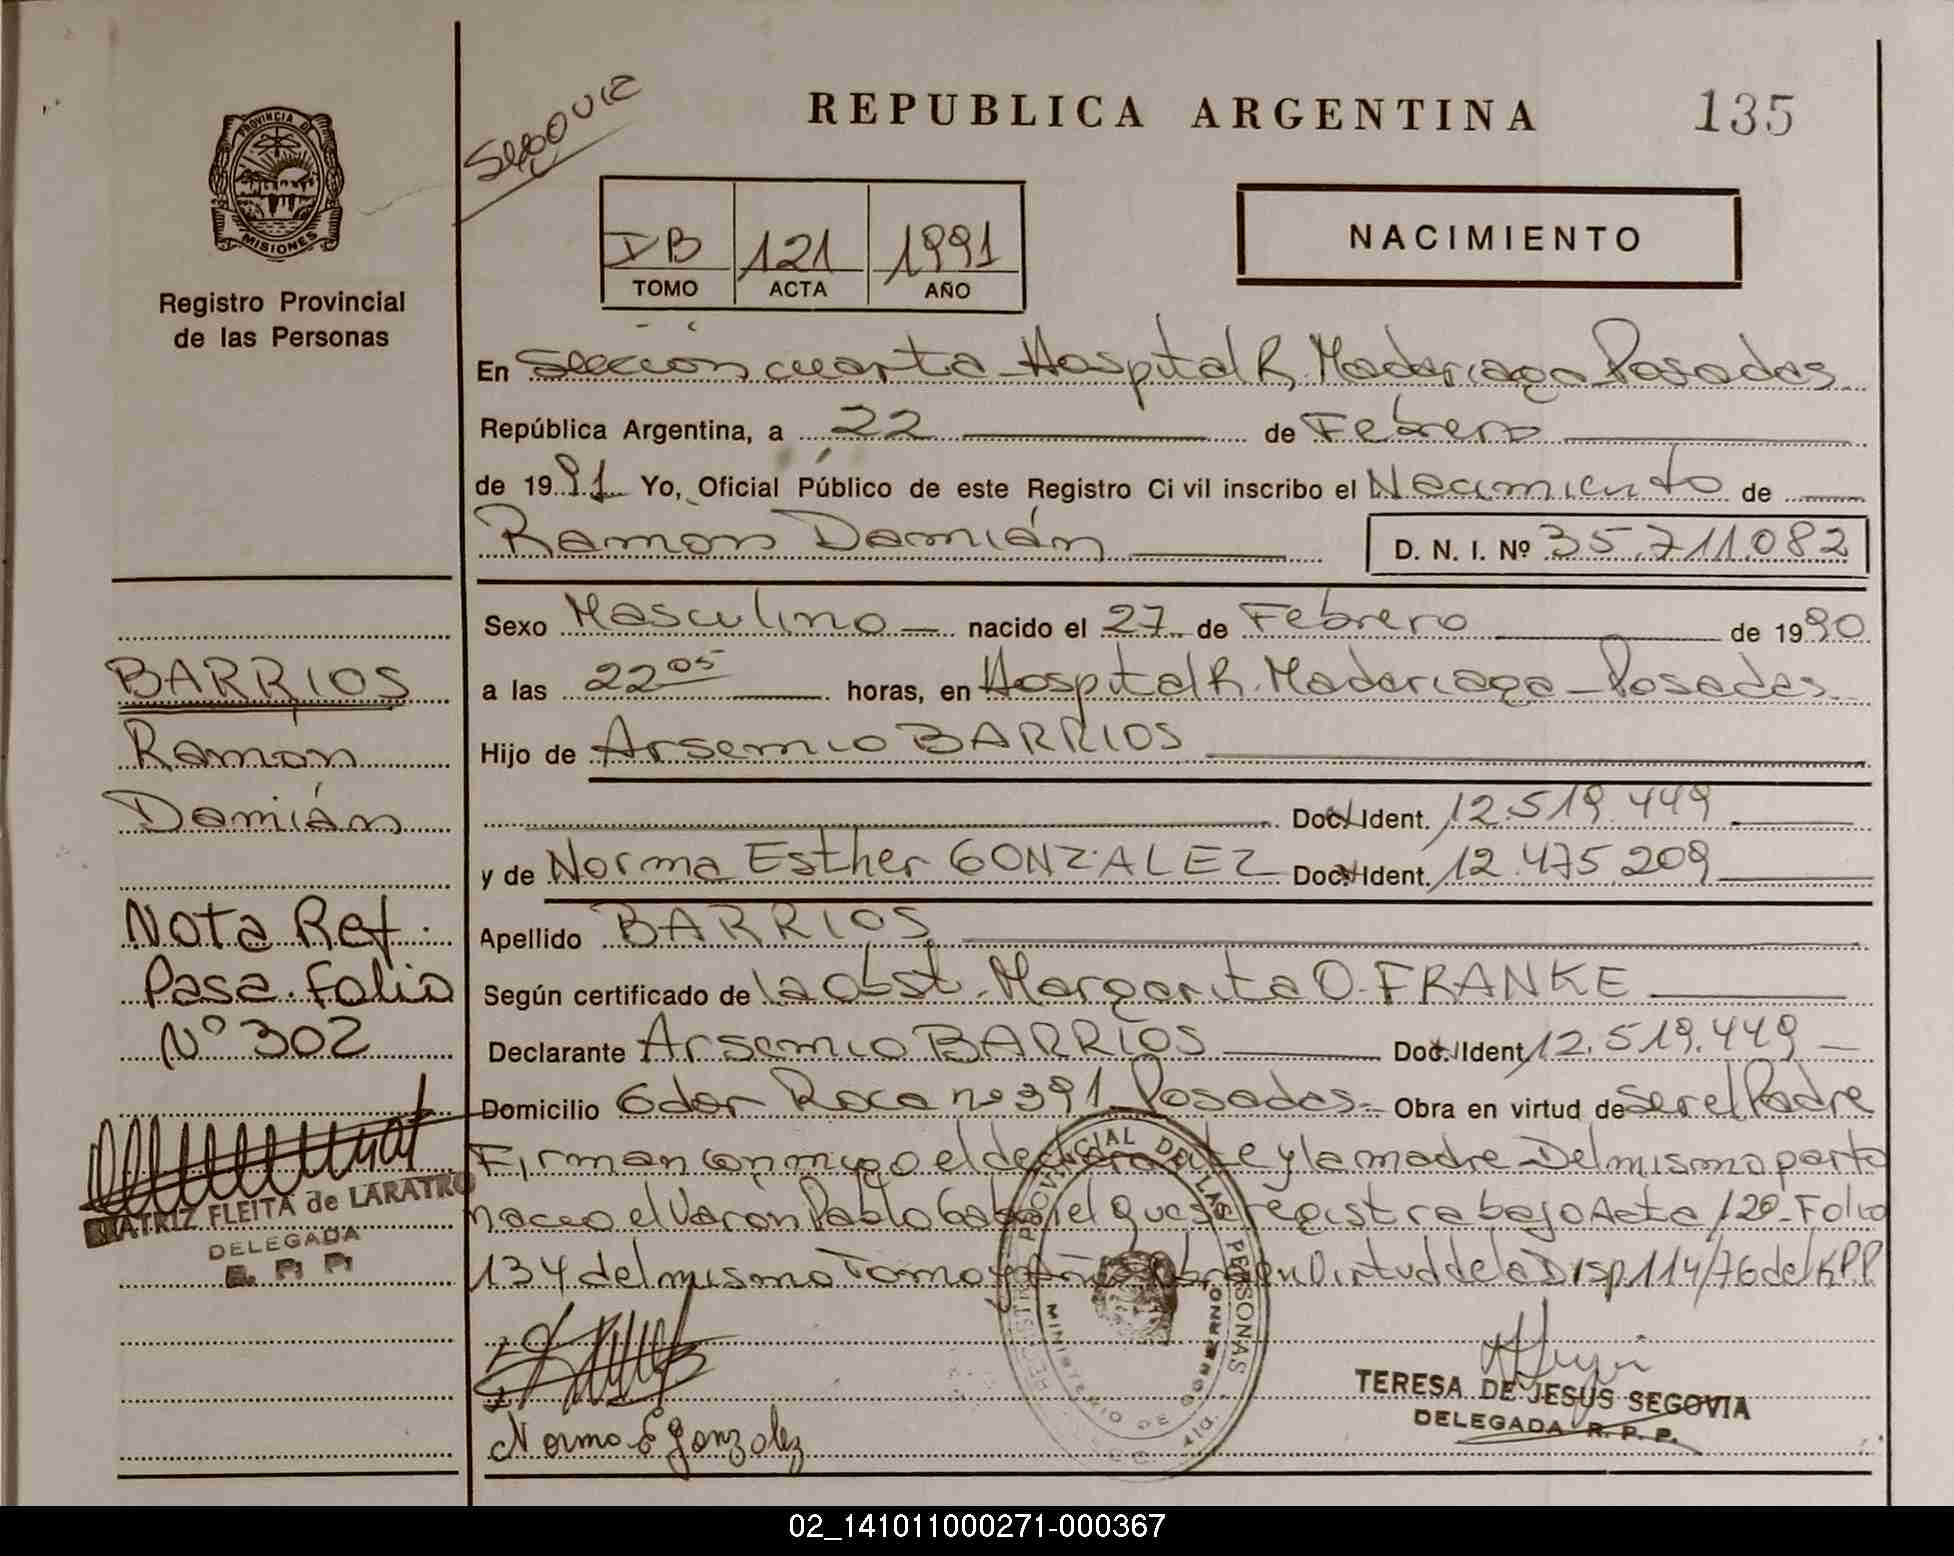 REPUBLICA ARGENTINA
135
PROVINCIA DE
MISIONES
Registro Provincial
de las Personas
DB 121 1991
TOMO ACTA AÑO
NACIMIENTO
En Sección cuarta Hospital R. Madariaga Posadas
República Argentina, a 22 de Febrero
de 1991 Yo, Oficial Público de este Registro Civil inscribo el Nacimiento de
Ramón Damián D. N. I. Nº 35.711.082
Sexo Masculino nacido el 27 de Febrero de 1990
a las 22 05 horas, en Hospital R. Madariaga - Posadas
Hijo de Arsenio BARRIOS
Doc. Ident. 12.519.449
y de Norma Esther GONZALEZ Doc. Ident. 12.475.209
Apellido BARRIOS
Según certificado de la obst. Margarita O. FRANKE
Declarante Arsenio BARRIOS Doc. Ident. 12.519.449
Domicilio Gdor Roca nº 391 Posadas- Obra en virtud de ser el Padre
Firman conmigo el declarante y la madre - Del mismo parto
nacio el Varón Pablo Gabriel que se registra bajo Acta 120 - Folio
134 del mismo Tomo y Año. Obra en Virtud de la Disp. 114/76 del RPP
Norma E Gonzalez
TERESA DE JESUS SEGOVIA
DELEGADA R. P. P.
PROVINCIAL DE LAS PERSONAS
MINISTERIO DE GOBIERNO
BARRIOS
Ramón
Damián
Nota Ref.
Pasa Folio
Nº 302
BEATRIZ FLEITA de LARATRO
DELEGADA
02_141011000271-000367